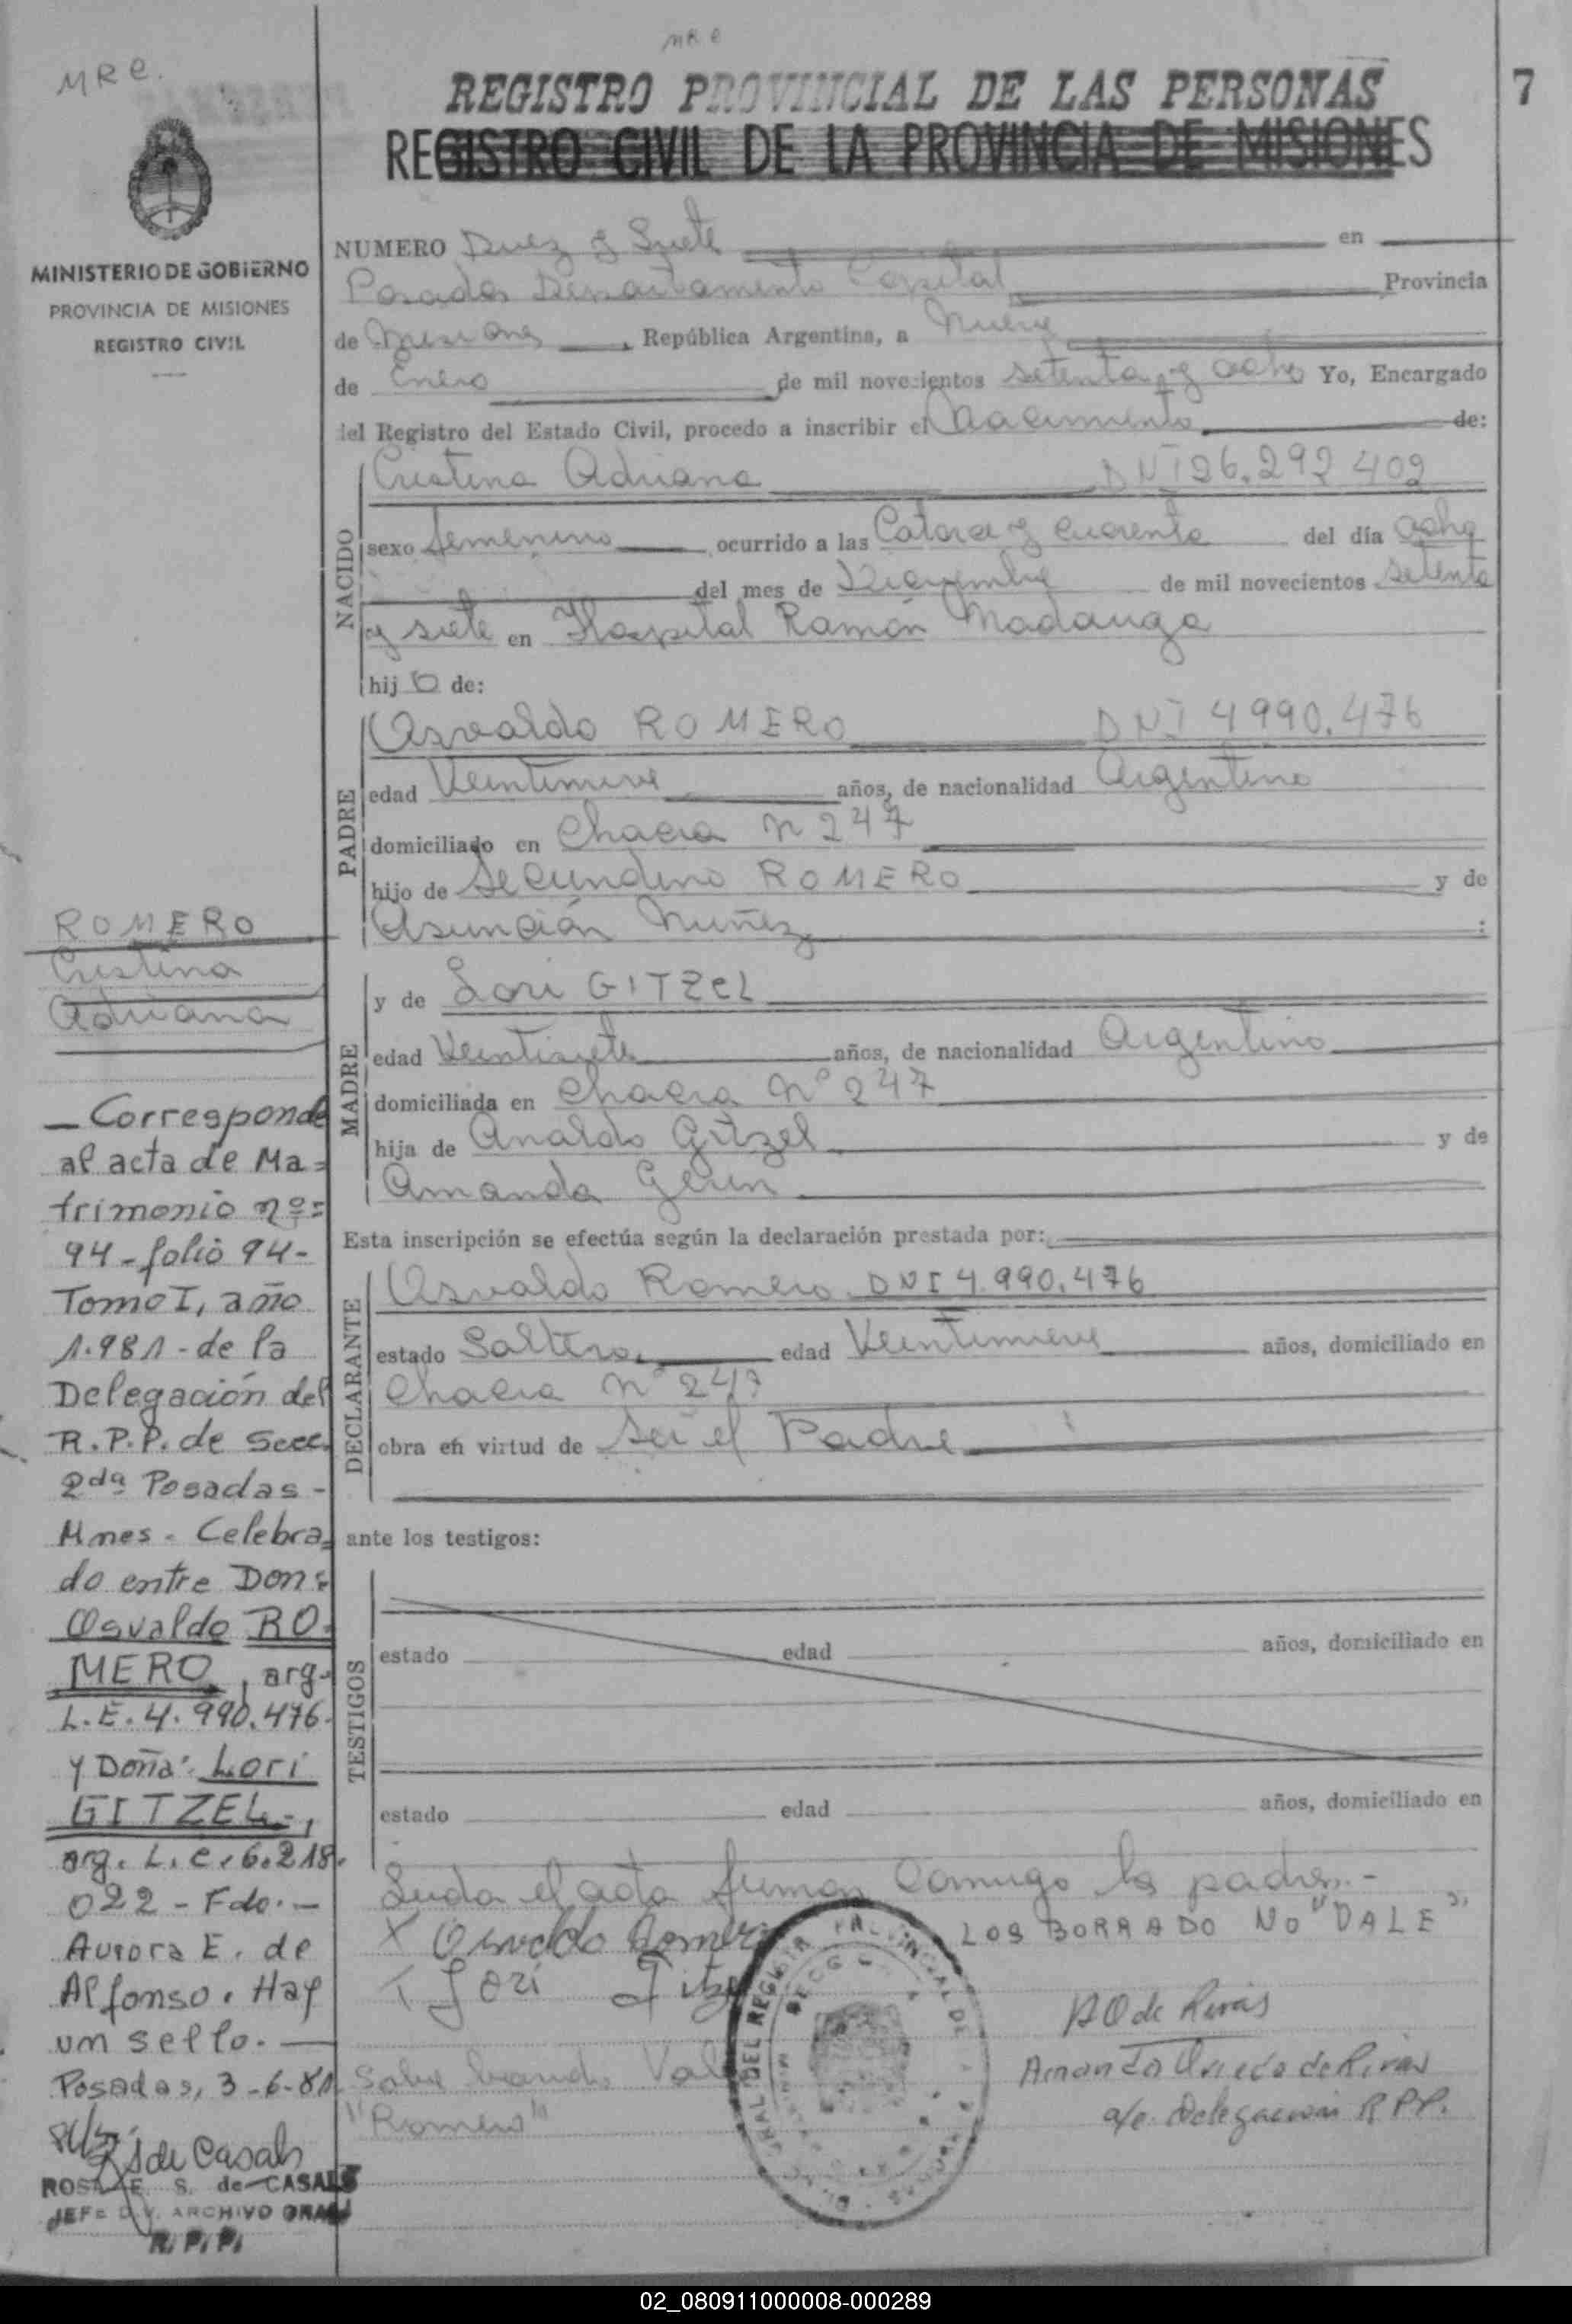 MRe
MRe.
7
REGISTRO PROVINCIAL DE LAS PERSONAS
REGISTRO CIVIL DE LA PROVINCIA DE MISIONES
MINISTERIO DE GOBIERNO
PROVINCIA DE MISIONES
REGISTRO CIVIL
NUMERO Diez y Siete en
Posadas Departamento Capital Provincia
de Misiones, República Argentina, a Nueve
de Enero de mil novecientos setenta y ocho Yo, Encargado
del Registro del Estado Civil, procedo a inscribir el Nacimiento de:
NACIDO
Cristina Adriana DNI 26.292.402
sexo femenino ocurrido a las Catorce y cuarenta del día ocho
del mes de Diciembre de mil novecientos setenta
y siete en Hospital Ramón Madariaga
hijo de:
PADRE
Osvaldo ROMERO DNI 4990.476
edad Veintinueve años, de nacionalidad Argentina
domiciliado en Chacra n 247
hijo de Secundino ROMERO y de
Asunción Nuñez :
MADRE
y de Lori GITZEL
edad Veintisiete años, de nacionalidad Argentina
domiciliada en Chacra N° 247
hija de Analdo Gitzel y de
Amanda
Esta inscripción se efectúa según la declaración prestada por:
DECLARANTE
Osvaldo Romero DNI 4.990.476
estado Soltero edad Veintinueve años, domiciliado en
Chacra N° 247
obra en virtud de ser el Padre
ante los testigos:
TESTIGOS
estado edad años, domiciliado en
estado edad años, domiciliado en
Leida el acta firman Conmigo los padres.-
LOS BORRADO NO "VALE",
X Osvaldo Romero
Lori Gitzel
Sobre Vale
"Romero"
AO de Rivas
de Rivas
a/c. Delegación RPP.
ROMERO
Cristina
Adriana
— Corresponde
al acta de Ma=
trimonio nº=
94-folio 94-
Tomo I, año
1.981-de la
Delegación del
R.P.P. de Secc.
2da Posadas-
Mnes- Celebra=
do entre Don:
Osvaldo RO=
MERO, arg-
L.E. 4.990.476-
y Doña: Lori
GITZEL-,
arg. L.C. 6.218.
022 - Fdo.-
Aurora E. de
Alfonso. Hay
un sello.—
Posadas, 3-6-81.
S de Casals
ROSA E. S. de CASALS
JEFE DIV. ARCHIVO GRAL
R.P.P.
02_080911000008-000289